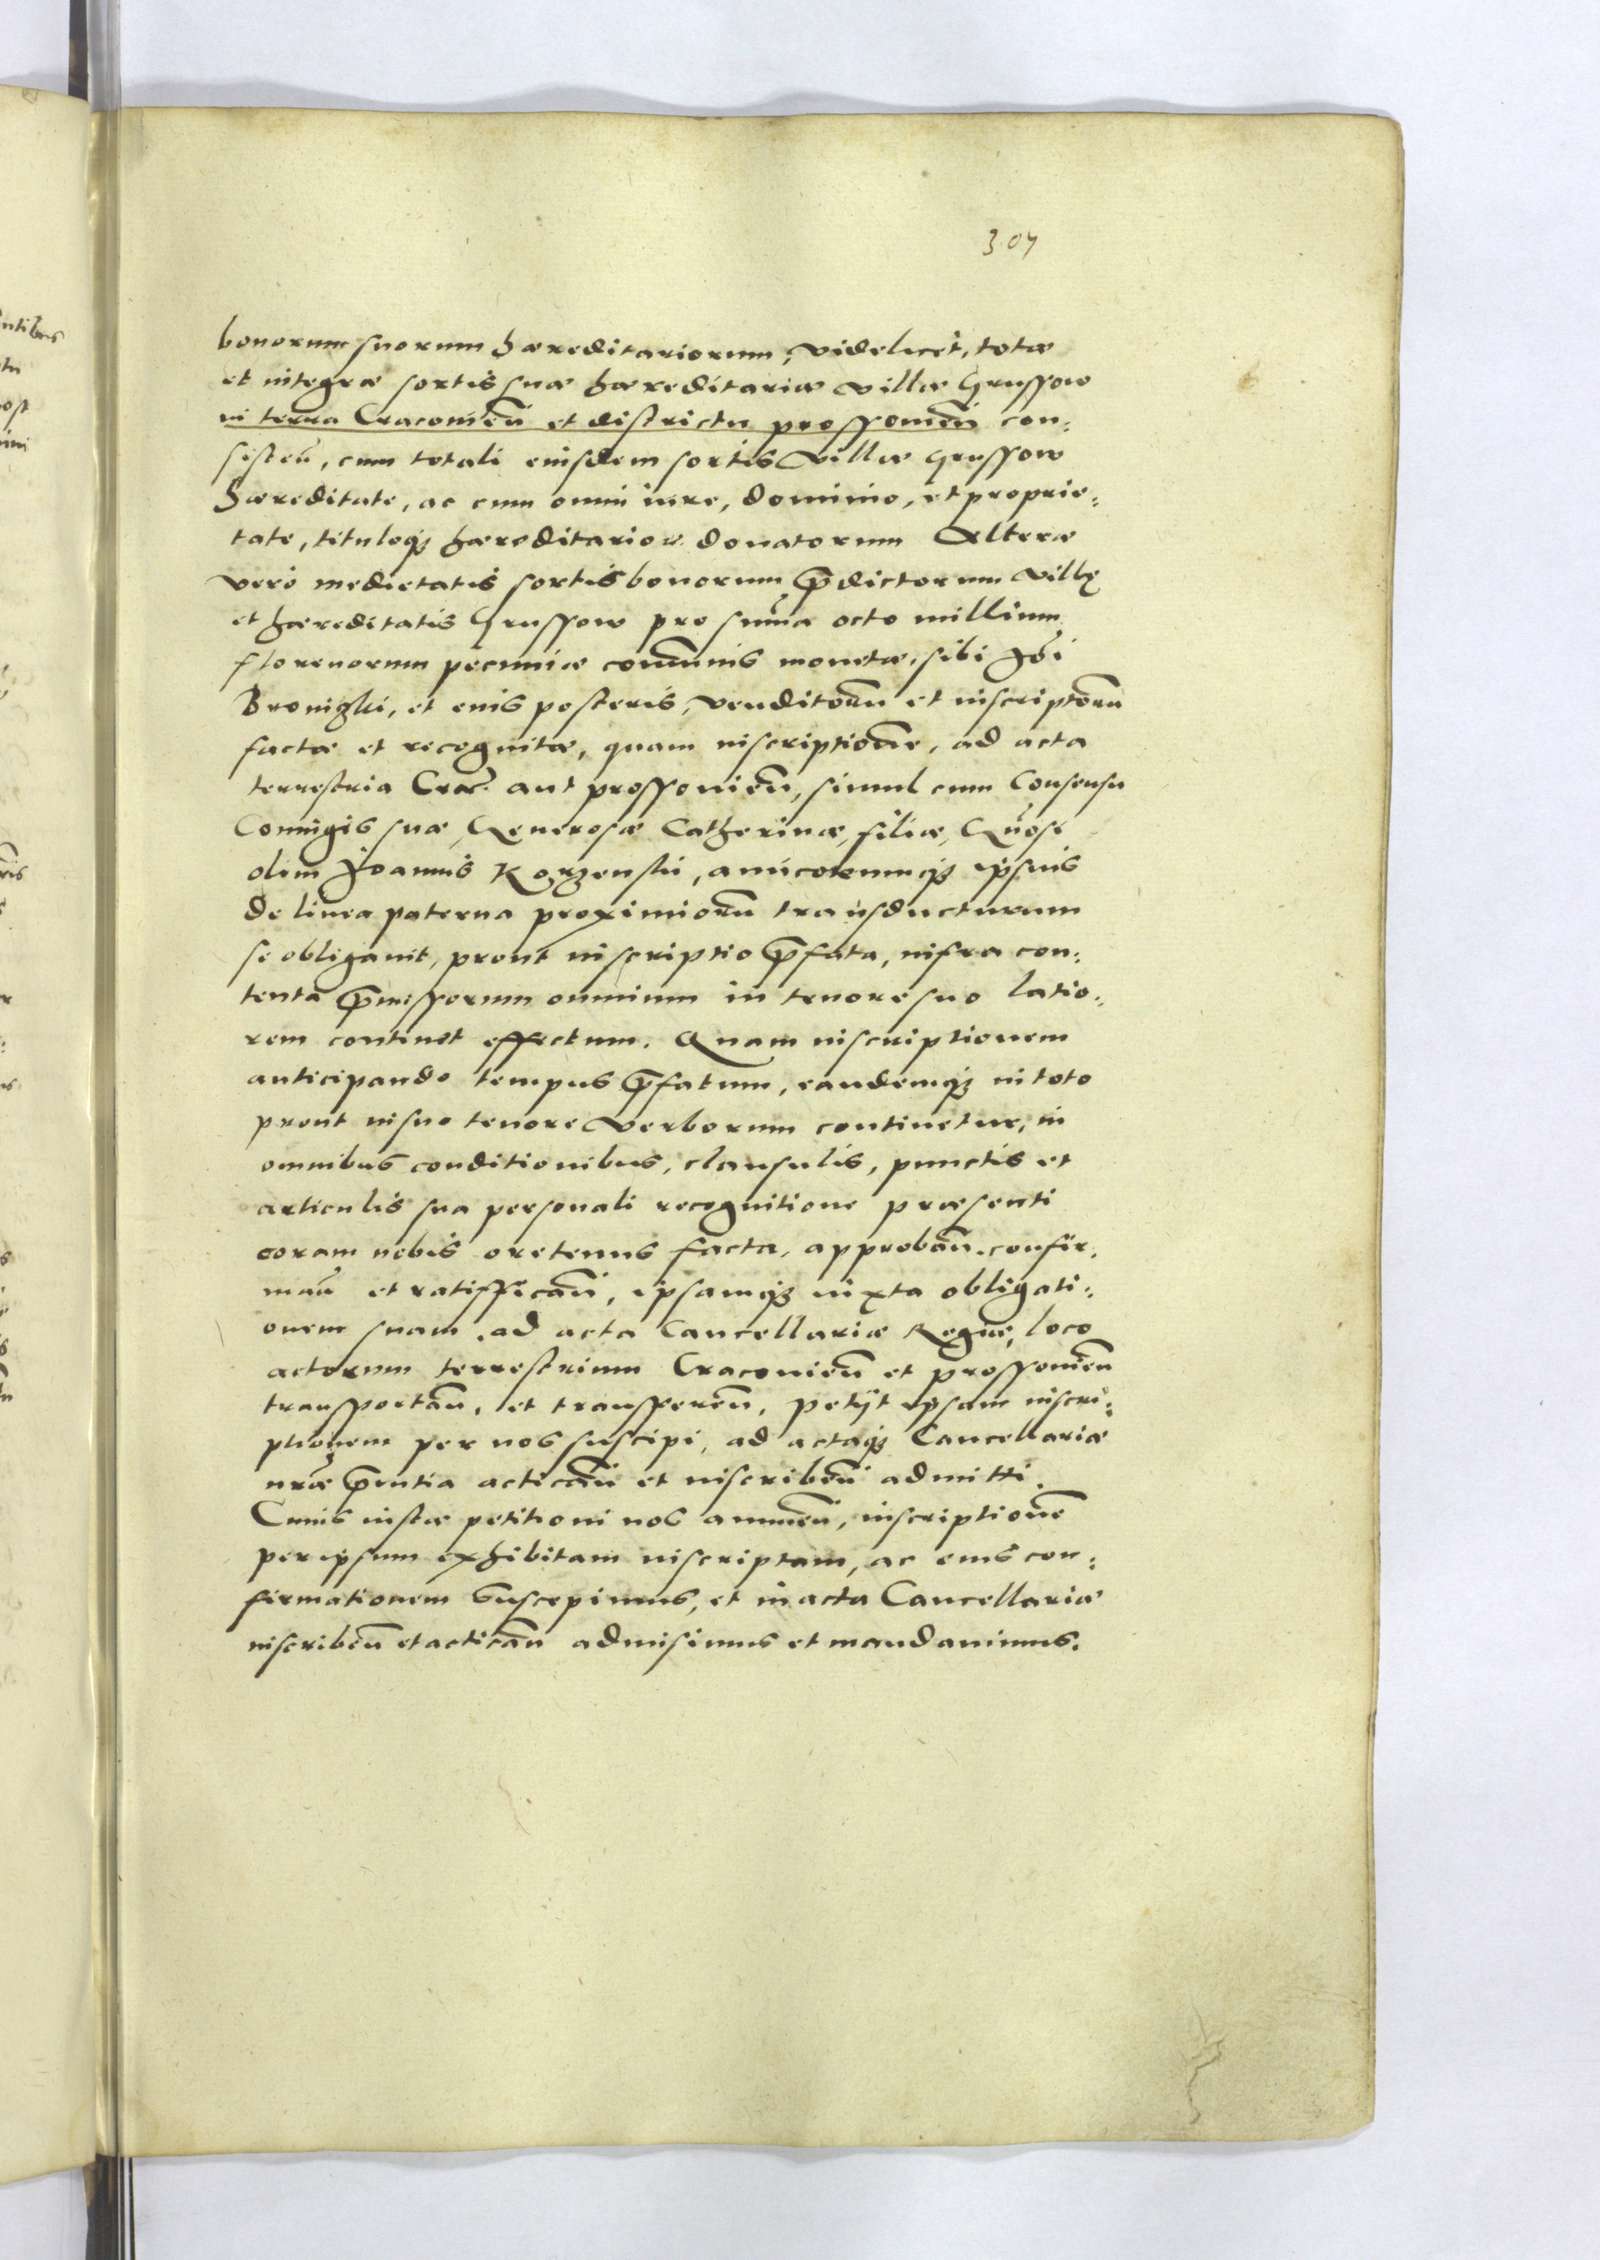 307
bonorum suorum haereditariorum, videlicet, totae
et integrae sortis suae haereditariae villae Grussow
in terra Cracovien̄ et districtu prossovien̄ con:
sisten̄, cum totali eiusdem sortis villae Grussow
haereditate, ac cum omni iure, dominio, et proprie:
tate, tituloq3 haereditario donatorum Alterae
vero medietatis sortis bonorum p̄dictorum villę
et haereditatis Grussow pro sum̄a octo millium
florenorum pecuniae com̄unis monetae, sibi
et eius posteris, venditorū et inscriptorū
factae et recognitae, quam inscriptionē, ad acta
terrestria Crac. aut prossovien̄, simul cum Consensu
Coniugis suae, Generosae Catherinae, filiae, Gn̄osi
olim Joannis amicorumq3 ipsius
de linea paterna proximiorū transducturum
se obligavit, prout inscriptio p̄fata, infra con:
tenta p̄missorum omnium in tenore suo latio:
rem continet effectum. Quam inscriptionem
anticipando tempus p̄fatum, eandemq3 in toto
prout in suo tenore verborum continetur, in
omnibus conditionibus, clausulis, punctis et
articulis sua personali recognitione praesenti
coram nobis oretenus facta, approban̄. confir:
man̄ et ratiffican̄, ipsamq3 iuxta obligati:
onem suam, ad acta Cancellariae Regiae, loco
actorum terrestrium Cracovien̄ et prossovien̄
transportan̄, et transferen̄, petijt ipsam inscri:
ptionem per nos suscipi, ad actaq3 Cancellariae
nr̄ae p̄ntia actican̄ et inscriben̄ admitti.
Cuius iustae petitioni nos annuen̄, inscriptionē
per ipsum exhibitam inscriptam, ac eius con:
firmationem suscepimus, et in acta Cancellariae
inscriben̄ et actican̄ admisimus et mandavimus.